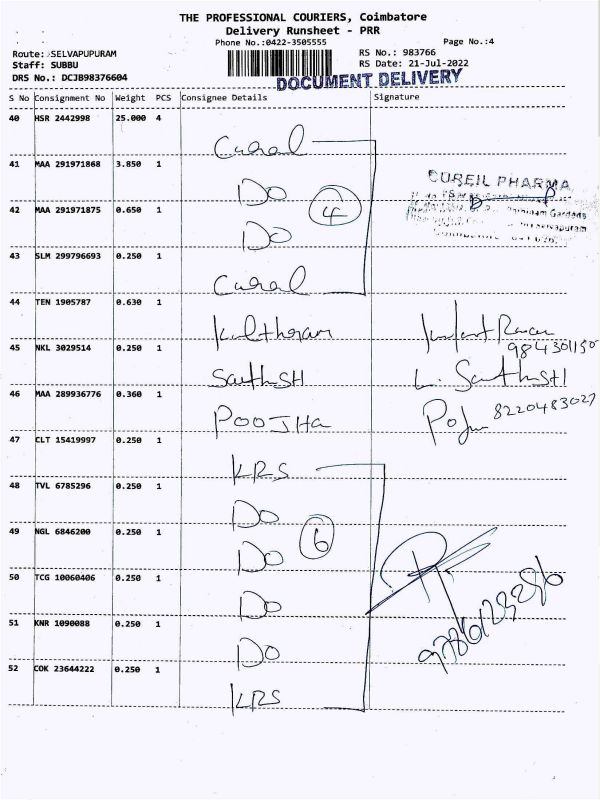 THE PROFESSIONAL COURIERS, Coimbatore
Delivery Runsheet - PRR
Phone No.:0422-3505555 Page No.:4
Route: SELVAPUPURAM RS No.: 983766
Staff: SUBBU RS Date: 21-Jul-2022
DRS No.: DCJB98376604 DOCUMENT DELIVERY
S No Consignment No Weight PCS Consignee Details Signature
40 HSR 2442998 25.000 4
Cureal
41 MAA 291971868 3.850 1
Do CUREIL PHARMA
4
42 MAA 291971875 0.650 1
Do
43 SLM 299796693 0.250 1
Cureal
44 TEN 1905787 0.630 1
45 NKL 3029514 0.250 1
SathiSH L. SathiSH
46 MAA 289936776 0.360 1
POOJHA 8220483027
47 CLT 15419997 0.250 1
KRS
48 TVL 6785296 0.250 1
Do
49 NGL 6846200 0.250 1
6
Do
50 TCG 10060406 0.250 1
Do
51 KNR 1090088 0.250 1
Do
52 COK 23644222 0.250 1
KRS